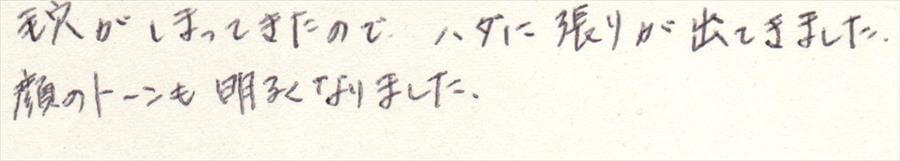 毛穴がしまってきたので、ハダに張りが出てきました.
顔のトーンも明るくなりました.